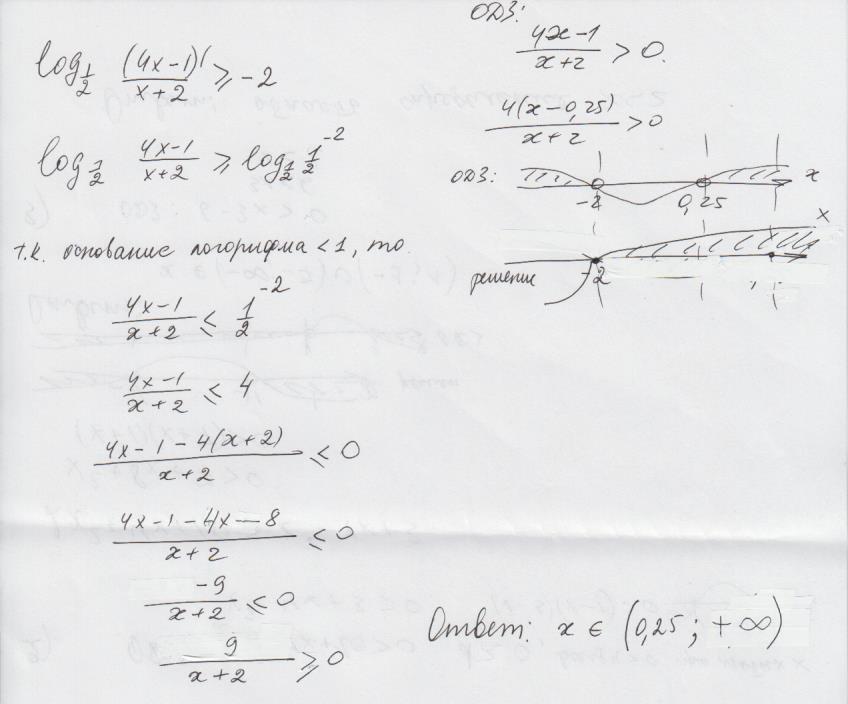 log_{1/2} (4x-1)/(x+2) ≥ -2
log_{1/2} (4x-1)/(x+2) ≥ log_{1/2} 1/2^{-2}
т.к. основание логорифма < 1, то
(4x-1)/(x+2) ≤ 1/2^{-2}
(4x-1)/(x+2) ≤ 4
(4x-1-4(x+2))/(x+2) ≤ 0
(4x-1-4x-8)/(x+2) ≤ 0
-9/(x+2) ≤ 0
9/(x+2) ≥ 0
ОДЗ:
(4x-1)/(x+2) > 0.
4(x-0,25)/(x+2) > 0
ОДЗ: -2 0,25 x
решение -2 x
Ответ: x ∈ (0,25; +∞)